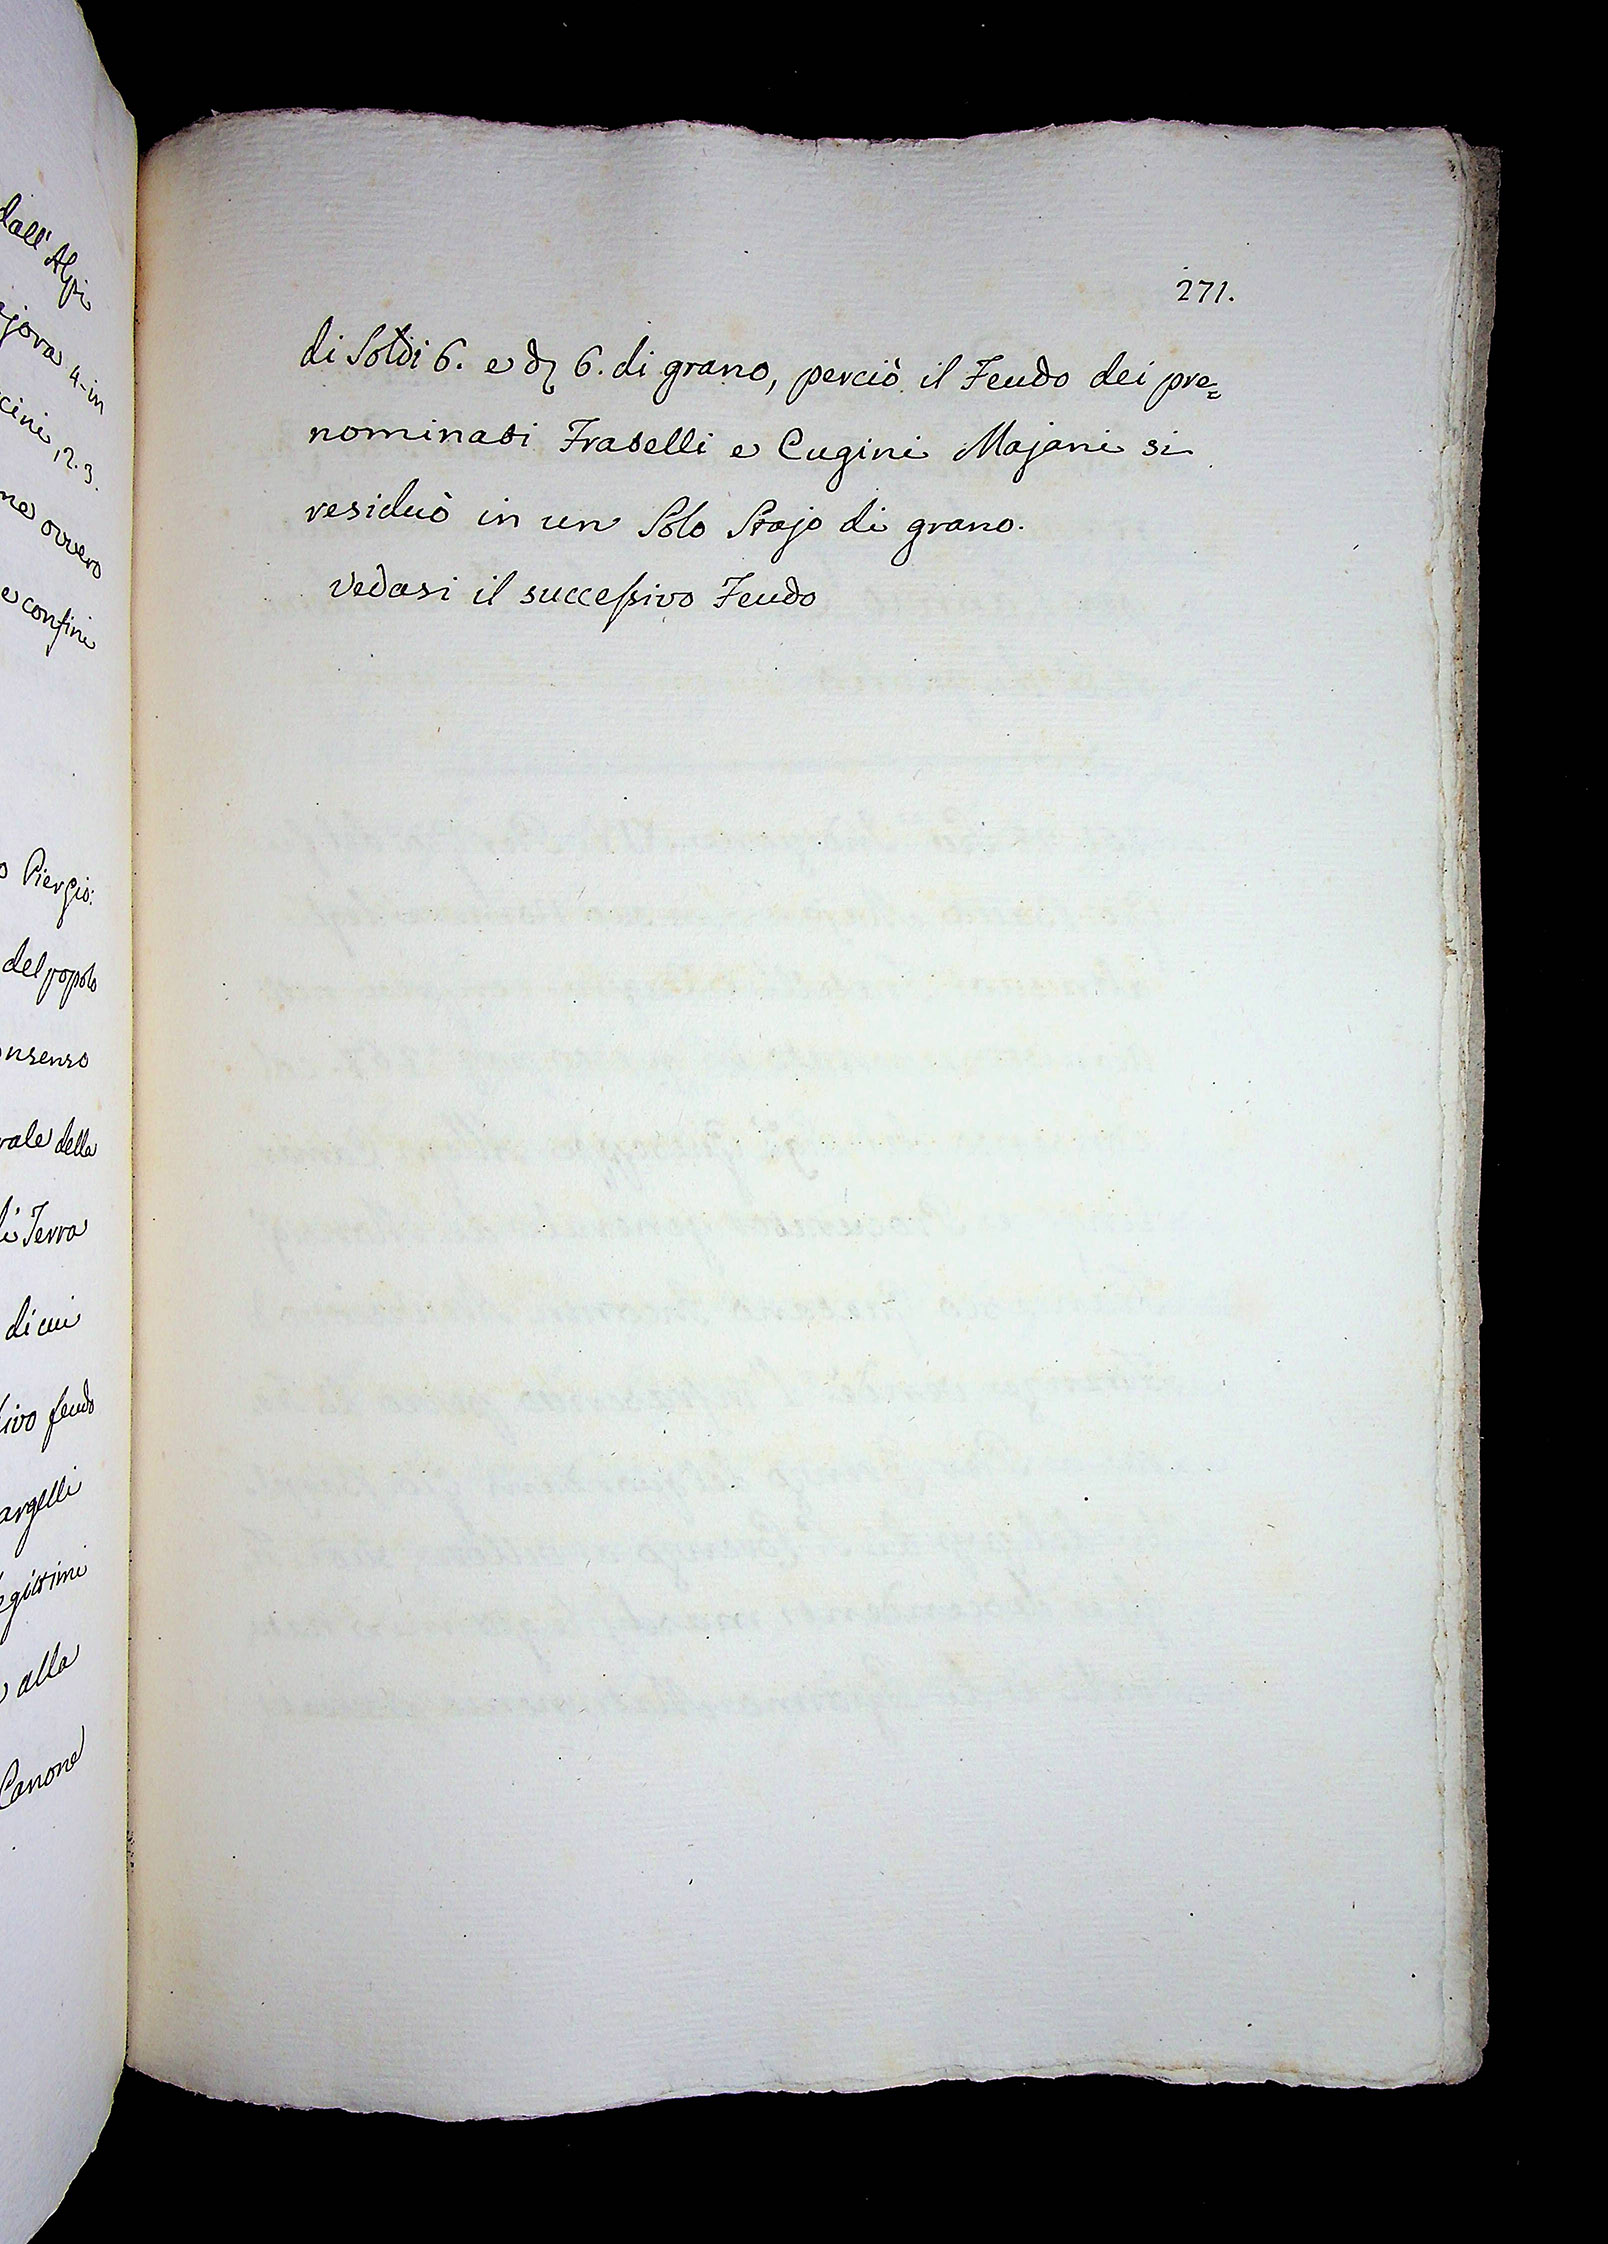 dall' Alpi
ajora 4 - in
cini, 2. 3.
ne ovvero
e confini
o Piergio:
del popolo
onsenso
rale della
di Terra
di cui
sivo feudo
argelli
egittimi
alla
Canone
271.
di Soldi 6. e d 6. di grano, perciò il Feudo dei pre=
nominati Fratelli e Cugini Majani si
residuò in un Solo Stajo di grano.
Vedasi il succeſsivo Feudo